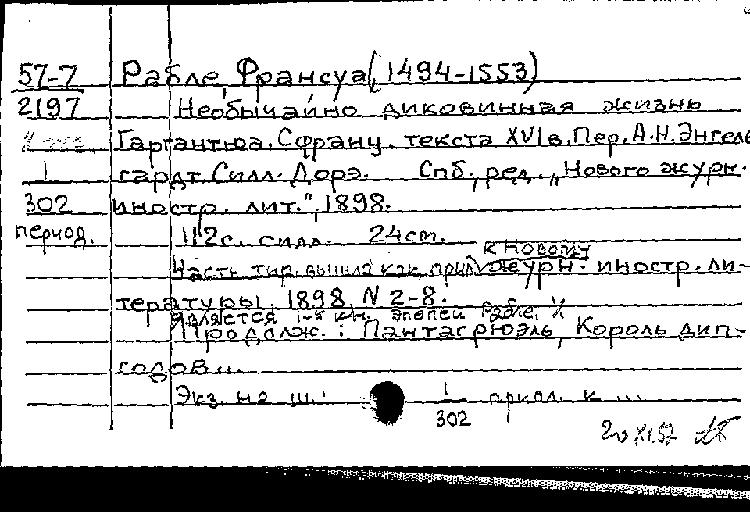 57-7 Рабле, Франсуа (1494-1553)
2197 Необычайно диковинная жизнь
Гаргантюа. С франц. текста XVI в. Пер. А.Н. Энгель
1 гардт. С илл. Дорэ. Спб., ред. „Нового журн.
302 иностр. лит.", 1898.
период. 112 с. с илл. 24 см.
к Новому
Часть тир. вышла как прил. журн. иностр. ли-
тературы. 1898, N 2-8.
Является 1-й кн. эпопеи Рабле
Продолж.: Пантагрюэль, Король дип-
содов...
Экз. на ш.: 1 прил. к ...
302
20 XI.57